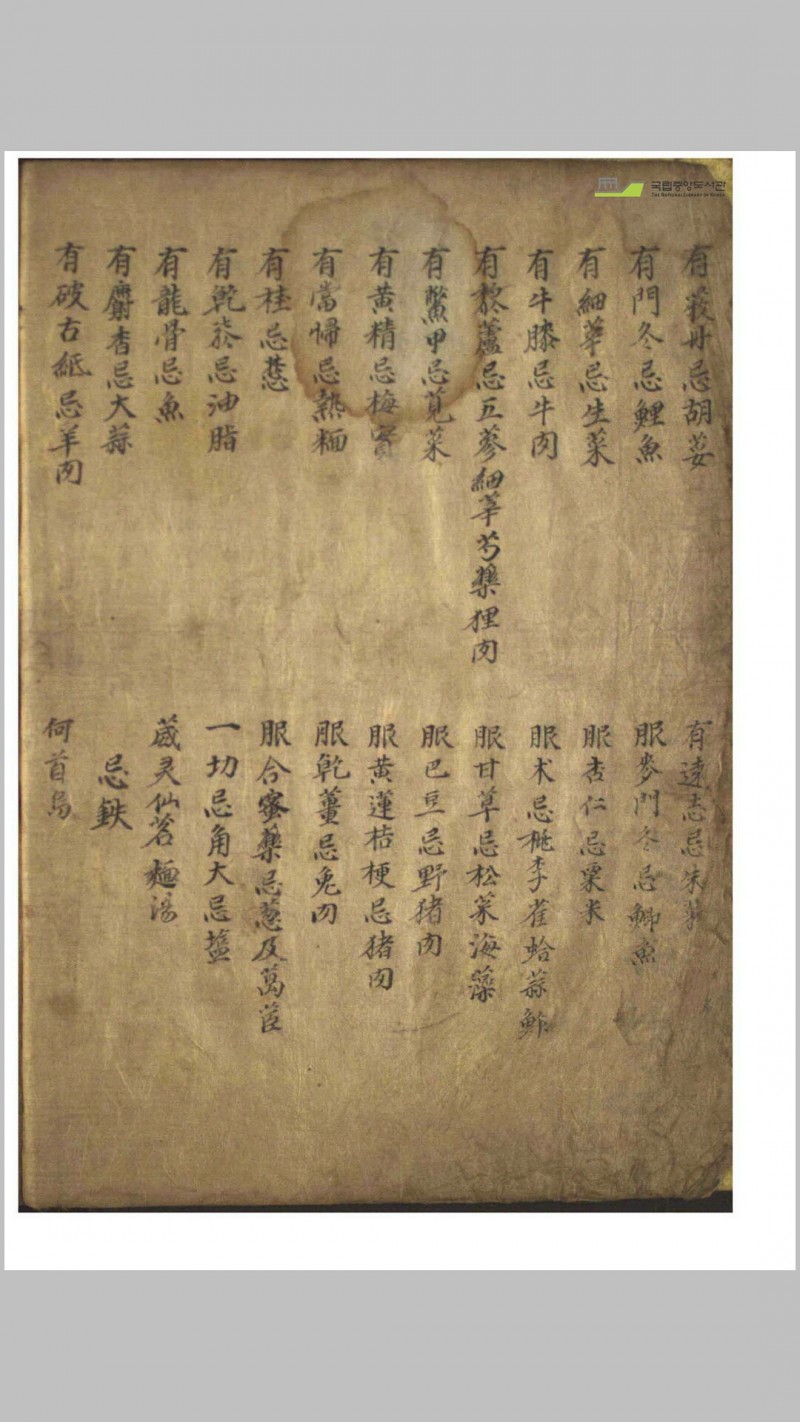 국립중앙도서관
THE NATIONAL LIBRARY OF KOREA
有莪朮忌胡荽
有門冬忌鯉魚
有細莘忌生菜
有牛膝忌牛肉
有藜蘆忌五蔘細莘芍藥狸肉
有鱉甲忌莧菜
有黃精忌梅實
有當帰忌熱糆
有桂忌葱
有乾柒忌油脂
有龍骨忌魚
有麝香忌大蒜
有破古紙忌羊肉
有遠志忌朱
服麥門冬忌鯽魚
服杏仁忌粟米
服术忌桃李雀蛤蒜鮓
服甘草忌松菜海藻
服巴豆忌野猪肉
服黃蓮桔梗忌猪肉
服乾薑忌兔肉
服合蜜藥忌葱及萵苣
一切忌角大忌盐
葳灵仙茗麺湯
忌鉄
何首烏